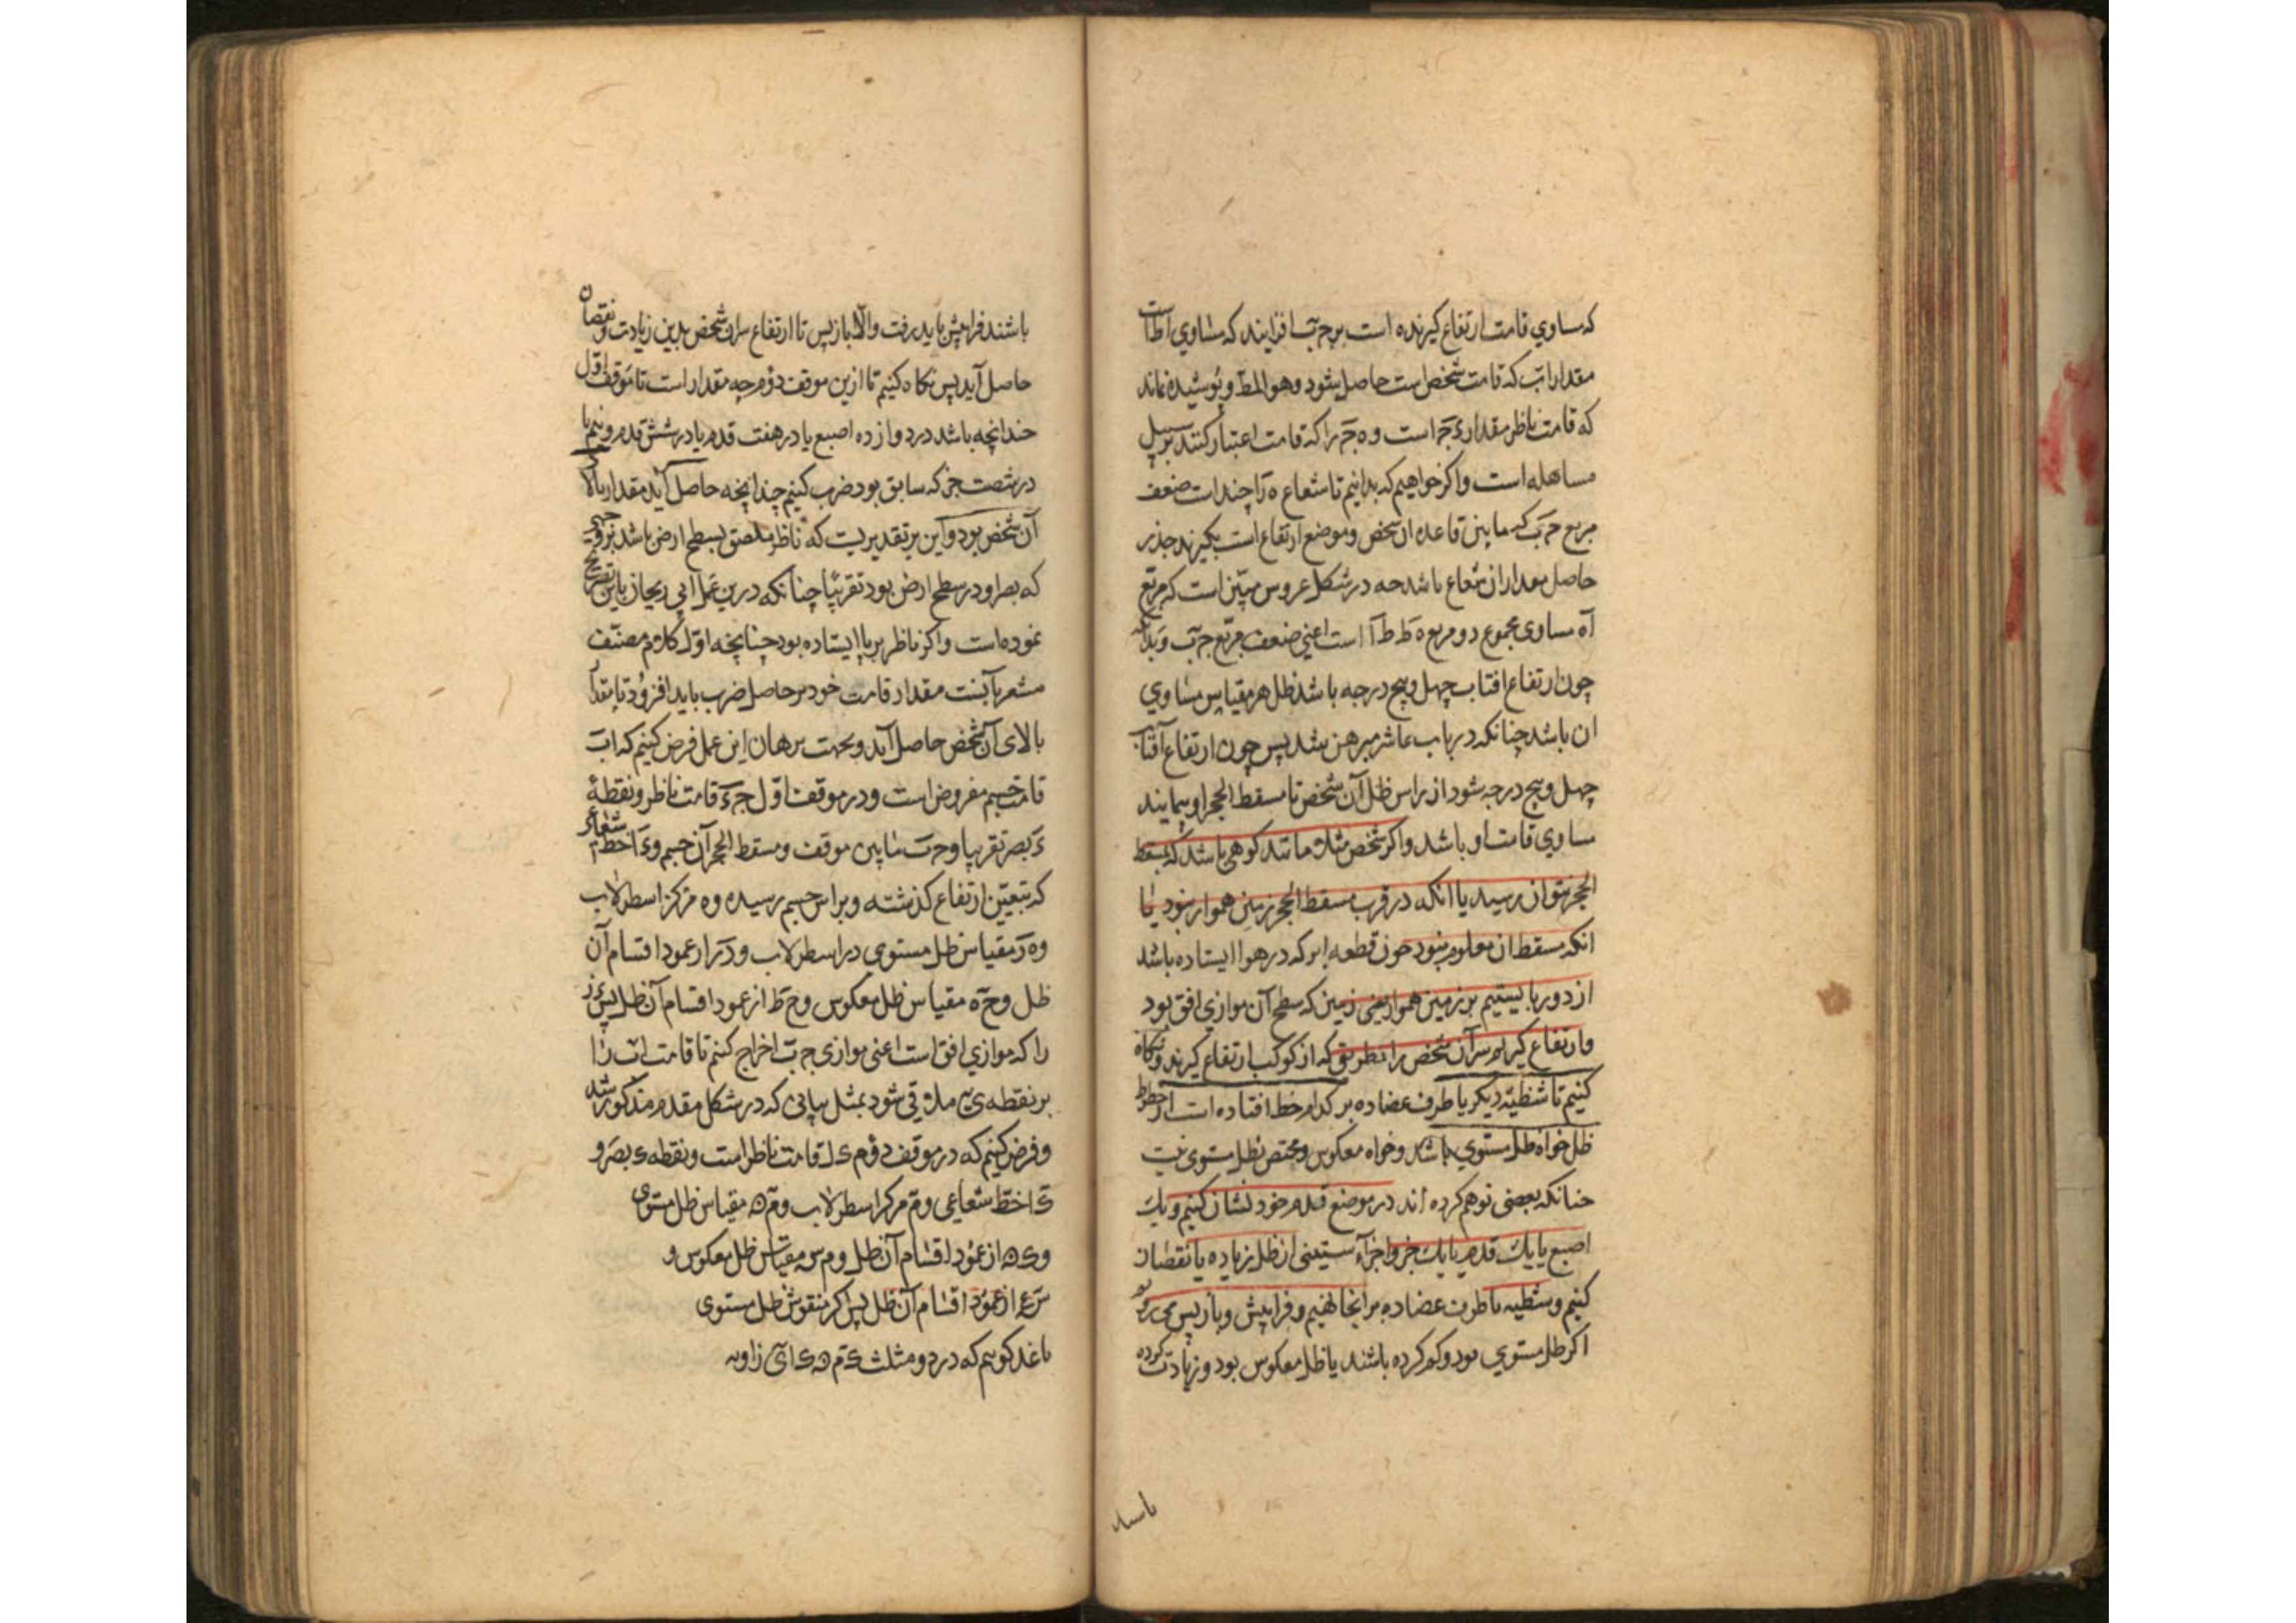 که مساوي قامت ارتفاع گیرنده است بر ج ب افزایند که مساوي اط است
مقدار اب که قامت شخص است حاصل شود وهو المط و پوشیده نماند
که قامت ناظر مقدار ء ج است و ه ج را که قامت اعتبار کنند بر سبیل
مساهله است واکر خواهیم که بدانیم تا شعاع ه ا چند است ضعف
مربع ج ب که مابین قاعده ان شخص و موضع ارتفاع است بکیرند جذر
حاصل مقدار ان شعاع باشد چه در شکل عروس مبیّن است که مربع
اه مساوی مجموع دو مربع ه ط ط ا است اعنی ضعف مربع ج ب
چون ارتفاع افتاب چهل و پنج درجه باشد ظل هر مقیاس مساوي
ان باشد چنانکه در باب عاشر مبرهن شد پس چون ارتفاع آفتاب
چهل و پنج درجه شود از راس ظل آن شخص تا مسقط الحجر او پیمایند
مساوي قامت او باشد واکر شخص مثلا مانند کوهی باشد که بمسقط
الحجر نتوان رسید یا انکه در قرب مسقط الحجر زمین هموار نبود یا
انکه مسقط ان معلوم نبود چون قطعه ابر که در هوا ایستاده باشد
از دور بایستیم بر زمین هموار یعنی زمین که سطح آن موازي افق بود
وارتفاع کیریم سر آن شخص را بطریق که از کوکب ارتفاع کیرند و نکاه
کنیم تا شظیّه دیکر یا طرف عضاده بر کدام خط افتاده است از خطوط
ظل خواه ظل مستوي باشد و خواه معکوس و مختص بظل مستوی نیست
چنانکه بعضی توهم کرده اند در موضع قدم خود نشان کنیم و یك
اصبع یا یك قدم یا یك جز و اجزآء ستینی ان ظل زیاده یا نقصان
کنیم و شظیه یا طرف عضاده بر انجا نهیم و فراپیش و بازپس می رویم
اکر ظل مستوي بود و کم کرده باشند یا ظل معکوس بود و زیادت کرده
باشند
باشند فراپیش باید رفت والّا بازپس تا ارتفاع سر ان شخص بدین زیادت و نقصان
حاصل آید پس نکاه کنیم تا ازین موقف دوم چه مقدار است تا موقف اوّل
چندانچه باشد در دوازده اصبع یا در هفت قدم یا در شش قدم و نیم یا
در شصت جز که سابق بود ضرب کنیم چندانچه حاصل آید مقدار بالاء
آن شخص بود و این بر تقدیریست که ناظر ملصق بسطح ارض باشد بر وجهی
که بصر او در سطح ارض بود تقریبًا چنانکه درین عمل ابی ریحان باین تصریح
نموده است واکر ناظر برپا ایستاده بود چنانچه اوّل کلام مصنّف
مشعر بآنست مقدار قامت خود بر حاصل ضرب باید افزود تا مقدار
بالای آن شخص حاصل آید و بجهت برهان این عمل فرض کنیم که اب
قامت جسم مفروض است و در موقف اوّل ج ء قامت ناظر و نقطهٔ
ء بصر تقریبا و ج ب مابین موقف و مسقط الحجر آن جسم و ء ا خط شعاعی
که بتعیّن ارتفاع کذشته و براس جسم رسیده و ه مرکز اسطرلاب
و ه ر مقیاس ظل مستوي در اسطرلاب و د ر از عمود اقسام آن
ظل و ح ه مقیاس ظل معکوس و ح ط از عمود اقسام آن ظل پس ء ز
را که موازي افق است اعنی موازی ج ب اخراج کنیم تا قامت اب را
بر نقطه ی ملاقی شود بمثل بیانی که در شکل مقدم مذکور شد
و فرض کنیم که در موقف دوم ك ل قامت ناظر است و نقطه ك بصر و
ك ا خط شعاعی و م مرکز اسطرلاب و م ن مقیاس ظل مستوی
و ك ن از عمود اقسام آن ظل و م س مقیاس ظل معکوس و
س ع از عمود اقسام آن ظل پس اکر منقوش ظل مستوی
باشد کوییم که در دو مثلث ك م ن ك ا ی زاویه